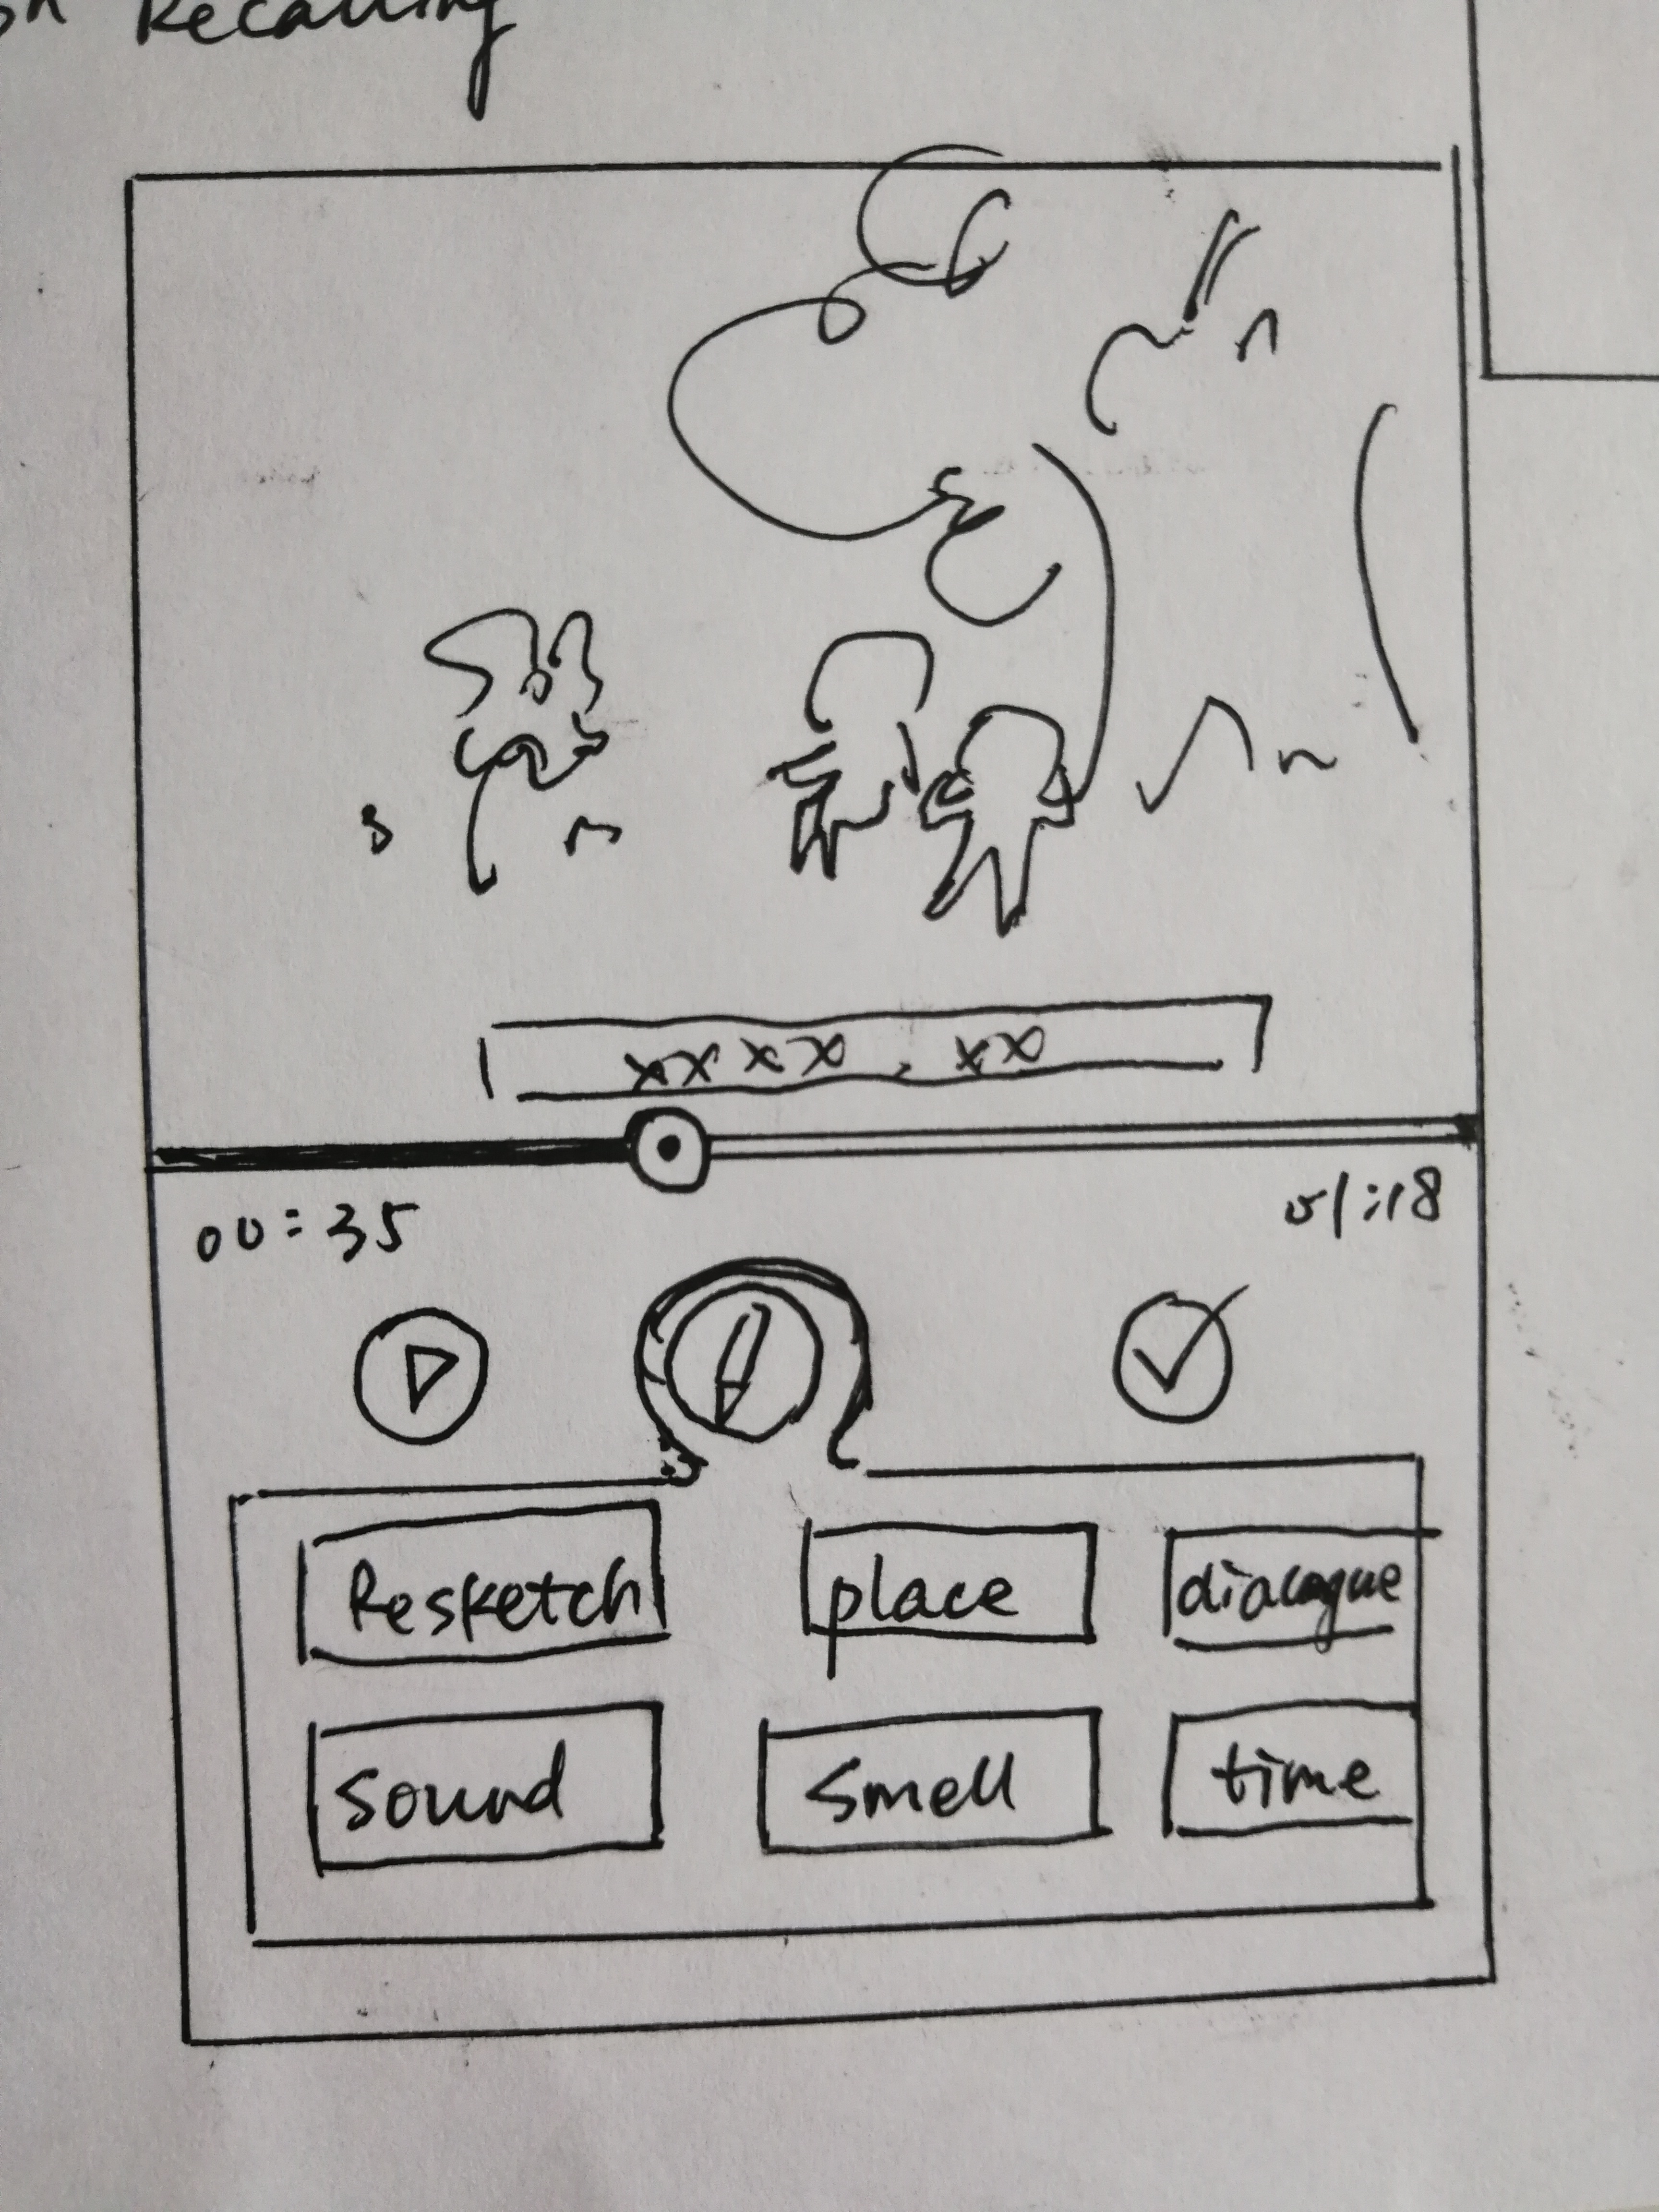 Recalling
xxxx, xx
00:35
01:18
Resketch
place
dialogue
Sound
Smell
time